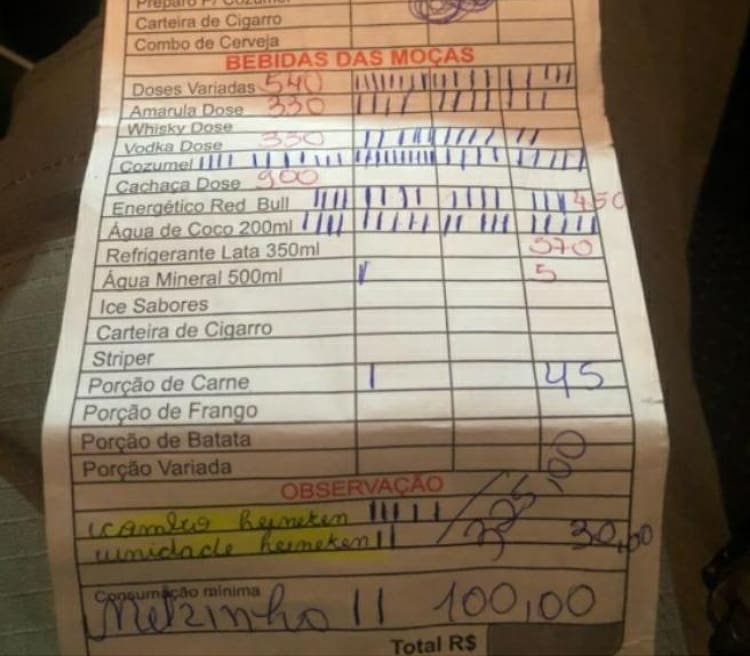 Preparo P/ Cozumel
Carteira de Cigarro
Combo de Cerveja
BEBIDAS DAS MOÇAS
Doses Variadas 540
Amarula Dose 330
Whisky Dose
Vodka Dose 330
Cozumel
Cachaça Dose 900
Energético Red Bull 450
Água de Coco 200ml
Refrigerante Lata 350ml 370
Água Mineral 500ml 5
Ice Sabores
Carteira de Cigarro
Striper
Porção de Carne 45
Porção de Frango
Porção de Batata
Porção Variada
OBSERVAÇÃO
heineken
unidade heineken 30,00
Consumação mínima
100,00
Total R$